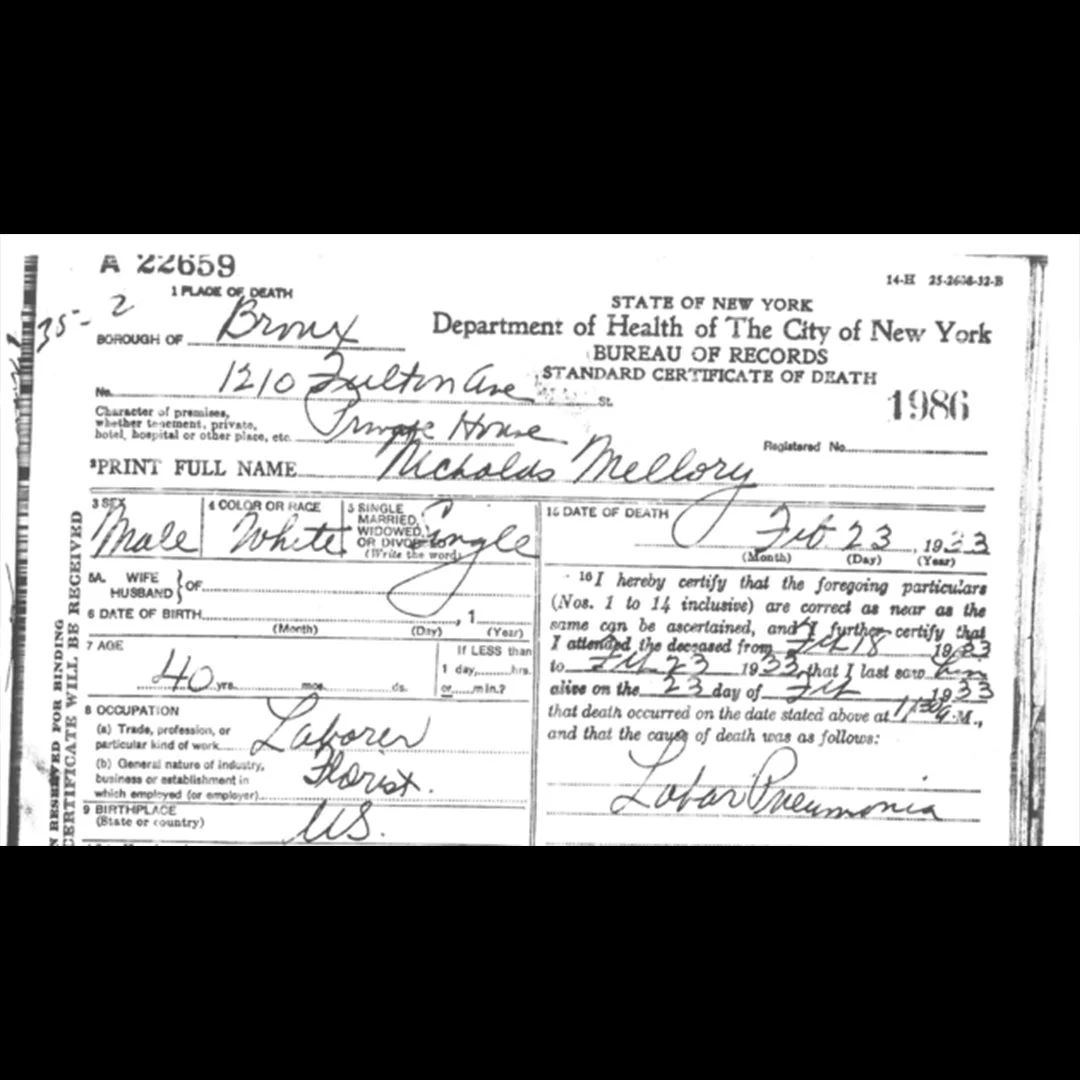 A 22659
14-H 25-2608-32-B
35-2
1 PLACE OF DEATH
BOROUGH OF Bronx
No. 1210 Fulton Ave St.
Character of premises,
whether tenement, private,
hotel, hospital or other place, etc. Private House
STATE OF NEW YORK
Department of Health of The City of New York
BUREAU OF RECORDS
STANDARD CERTIFICATE OF DEATH
1986
Registered No.
2 PRINT FULL NAME Nicholas Mellory
3 SEX
Male
4 COLOR OR RACE
White
5 SINGLE
MARRIED,
WIDOWED,
OR DIVORCED
(Write the word)
Single
5A. WIFE
HUSBAND } OF
6 DATE OF BIRTH , 1
(Month) (Day) (Year)
7 AGE
40 yrs. mos. ds.
If LESS than
1 day, hrs.
or min.?
8 OCCUPATION
(a) Trade, profession, or
particular kind of work Laborer
(b) General nature of industry,
business or establishment in
which employed (or employer) Florist.
9 BIRTHPLACE
(State or country) U.S.
15 DATE OF DEATH
Feb 23, 1933
(Month) (Day) (Year)
16 I hereby certify that the foregoing particulars
(Nos. 1 to 14 inclusive) are correct as near as the
same can be ascertained, and I further certify that
I attended the deceased from Feb 18 1933
to Feb 23 1933, that I last saw him
alive on the 23 day of Feb, 1933
that death occurred on the date stated above at M.,
and that the cause of death was as follows:
Lobar Pneumonia
N RESERVED FOR BINDING
CERTIFICATE WILL BE RECEIVED